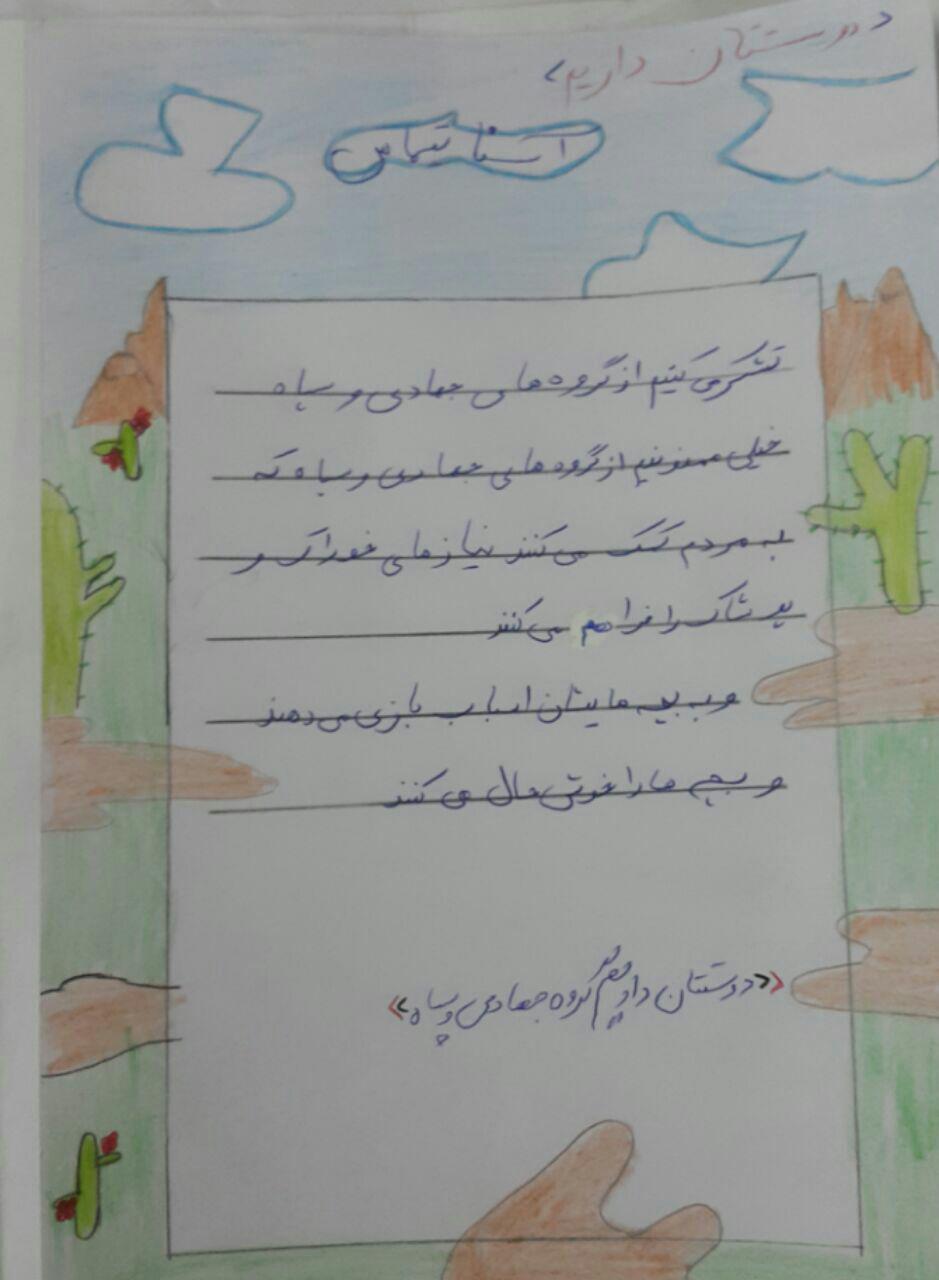 دوستتان داریم
تشکر می کنیم از گروه های جهادی و سپاه
خیلی ممنونیم از گروه های جهادی و سپاه که
به مردم کمک می کنند نیازهای خوراک و
پوشاک را فراهم می کنند
و به بچه هایشان اسباب بازی می دهند
و بچه ها را خوش حال می کنند
«دوستتان داریم گروه جهادی و سپاه»